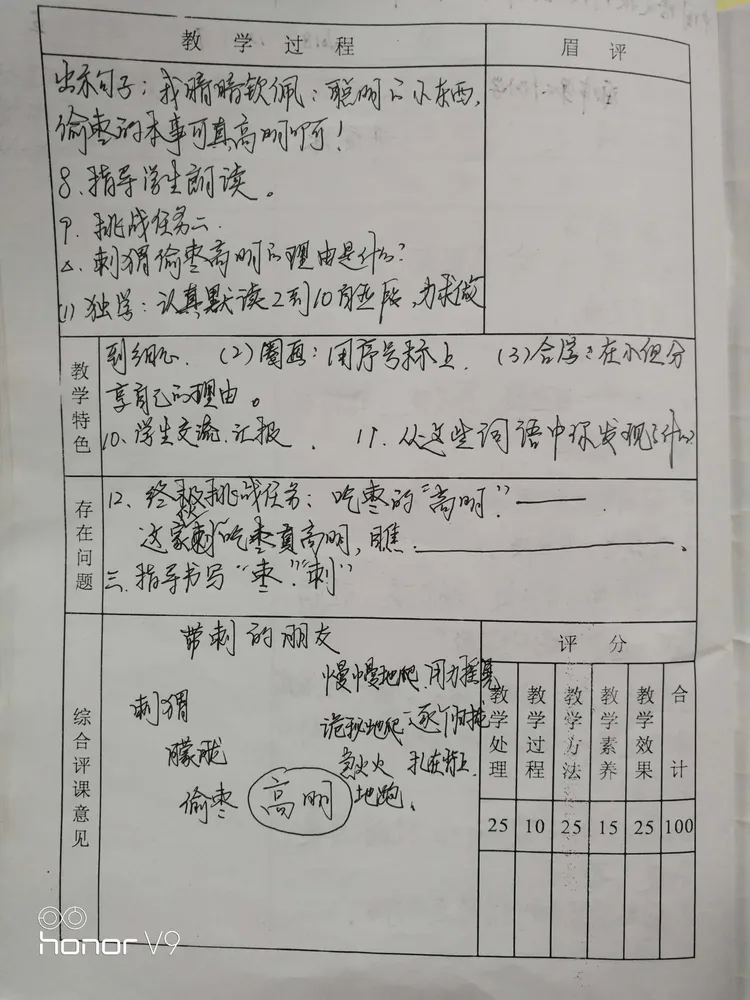 教学过程
眉评
出示句子：我暗暗钦佩：聪明的小东西，
偷枣的本事可真高明啊！
8、指导学生朗读。
9、挑战任务二、
△、刺猬偷枣高明的理由是什么？
(1)独学：认真默读2到10自然段，力求做
教学特色
到细心、(2)圈画：用序号标上、(3)合学：在小组分
享自己的理由。
10、学生交流、汇报、11、从这些词语中你发现了什么？
存在问题
12、终极挑战任务：吃枣的"高明"！——
这家刺"吃枣真高明，瞧：
三、指导书写"枣""刺"
综合评课意见
带刺的朋友
刺猬
朦胧
偷枣 高明
慢慢地爬、用力摇晃
诡秘地爬、逐个归拢
急火火 扎在背上
地跑、
评分
教学处理 教学过程 教学方法 教学素养 教学效果 合计
25 10 25 15 25 100
honor V9